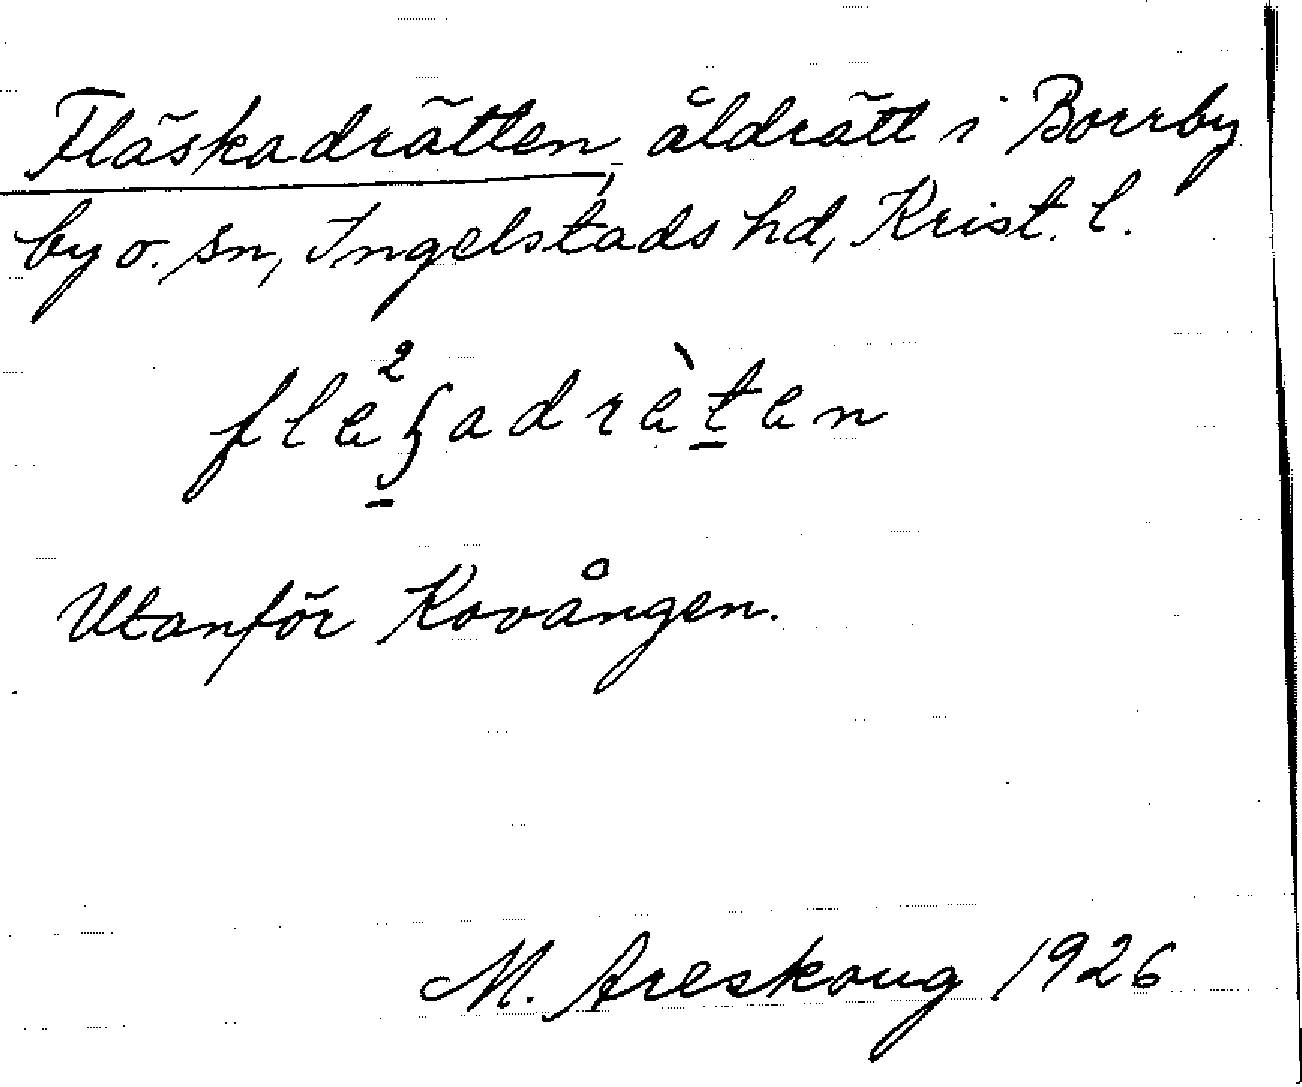 Fläskadrätten, åldrätt i Borrby
by o. sn, Ingelstads hd, Krist. l.
Utanför Kovången.
M. Areskoug 1926